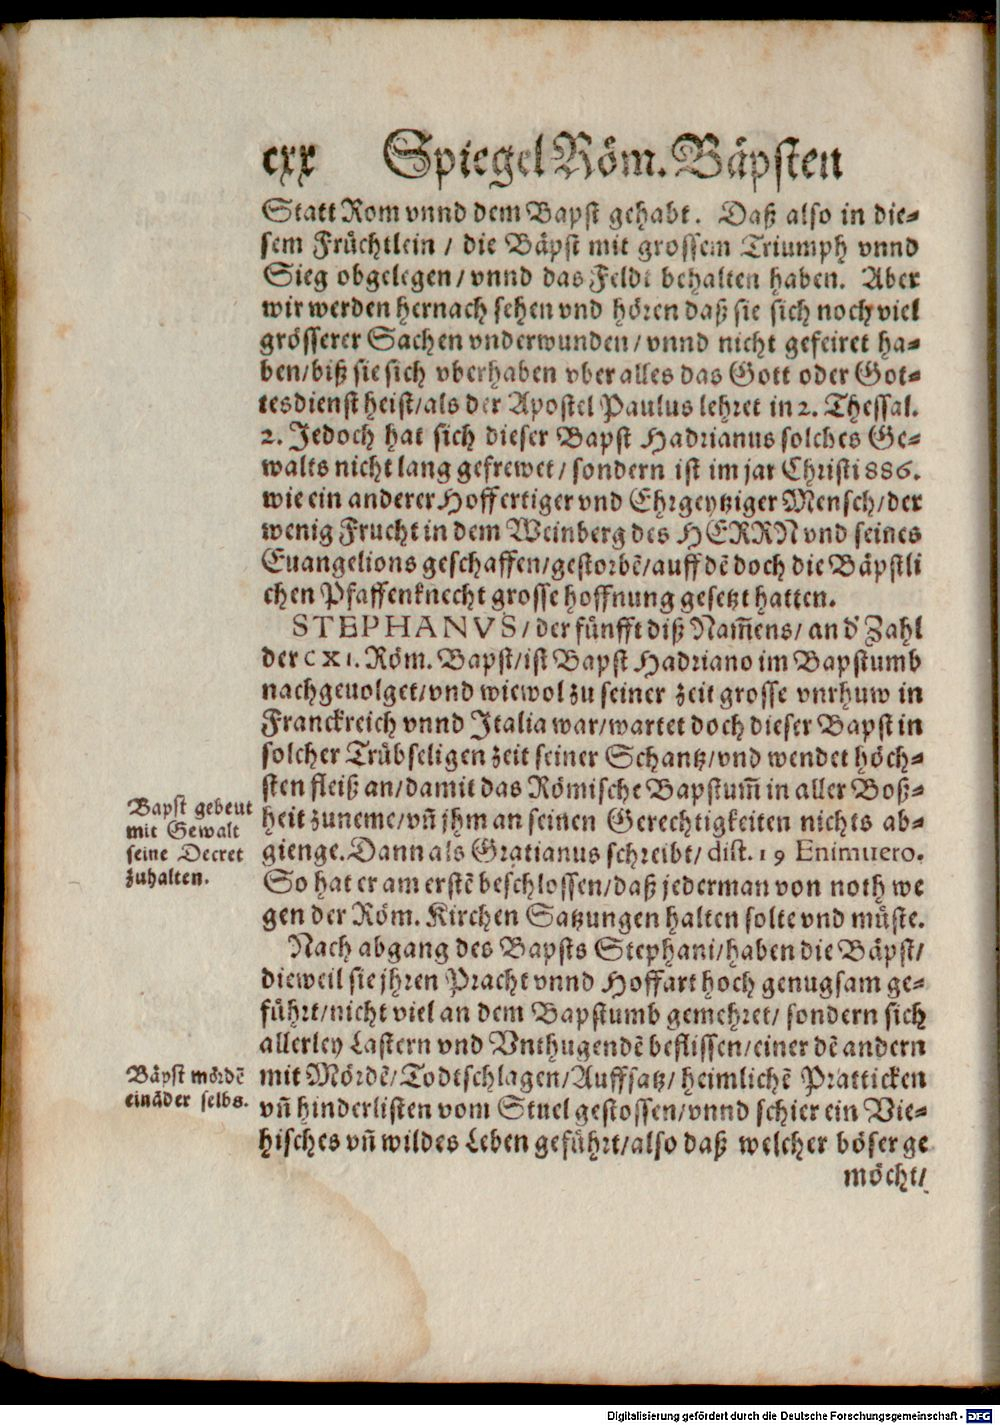 cxx Spiegel Röm. Bäpsten
Statt Rom vnnd dem Bapst gehabt. Daß also in die-
sem Früchtlein / die Bäpst mit grossem Triumph vnnd
Sieg obgelegen / vnnd das Feldt behalten haben. Aber
wir werden hernach sehen vnd hören daß sie sich noch viel
grösserer Sachen vnderwunden / vnnd nicht gefeiret ha-
ben / biß sie sich vberhaben vber alles das Gott oder Got-
tesdienst heist / als der Apostel Paulus lehret in 2. Thessal.
2. Jedoch hat sich dieser Bapst Hadrianus solches Ge-
walts nicht lang gefrewet / sondern ist im jar Christi 886.
wie ein anderer Hoffertiger vnd Ehrgeytziger Mensch / der
wenig Frucht in dem Weinberg des HERRN vnd seines
Euangelions geschaffen / gestorbē / auff dē doch die Bäpstli
chen Pfaffenknecht grosse hoffnung gesetzt hatten.
STEPHANVS / der fünfft diß Nam̄ens / an d' Zahl
der CXI. Röm. Bapst / ist Bapst Hadriano im Bapstumb
nachgeuolget / vnd wiewol zu seiner zeit grosse vnrhuw in
Franckreich vnnd Italia war / wartet doch dieser Bapst in
solcher Trübseligen zeit seiner Schantz / vnd wendet höch-
sten fleiß an / damit das Römische Bapstum̄ in aller Boß-
Bapst gebeut
mit Gewalt
seine Decret
zuhalten.
heit zuneme / vn̄ jhm an seinen Gerechtigkeiten nichts ab-
gienge. Dann als Gratianus schreibt / dist. 19 Enimuero.
So hat er am erstē beschlossen / daß jederman von noth we
gen der Röm. Kirchen Satzungen halten solte vnd müste.
Nach abgang des Bapsts Stephani / haben die Bäpst /
dieweil sie jhren Pracht vnnd Hoffart hoch genugsam ge-
führt / nicht viel an dem Bapstumb gemehret / sondern sich
allerley Lastern vnd Vnthugendē beflissen / einer dē andern
Bäpst mördē
eināder selbs.
mit Mördē / Todtschlagen / Auffsatz / heimlichē Pratticken
vn̄ hinderlisten vom Stuel gestossen / vnnd schier ein Vie-
hisches vn̄ wildes Leben geführt / also daß welcher böser ge
möcht /
Digitalisierung gefördert durch die Deutsche Forschungsgemeinschaft - DFG